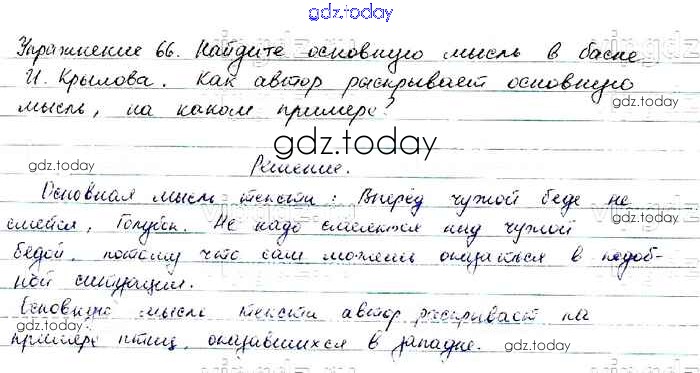 gdz.today
Упражнение 66. Найдите основную мысль в басне
И. Крылова. Как автор раскрывает основную
gdz.today
мысль, на каком примере?
gdz.today
gdz.today
Решение.
Основная мысль текста: Вперёд чужой беде не
смейся, Голубок. Не надо смеяться над чужой
gdz.today
бедой, потому что сам можешь оказаться в подоб-
ной ситуации.
gdz.today
Основную мысль текста автор раскрывает на
gdz.today
примере птиц, оказавшихся в западне.
gdz.today